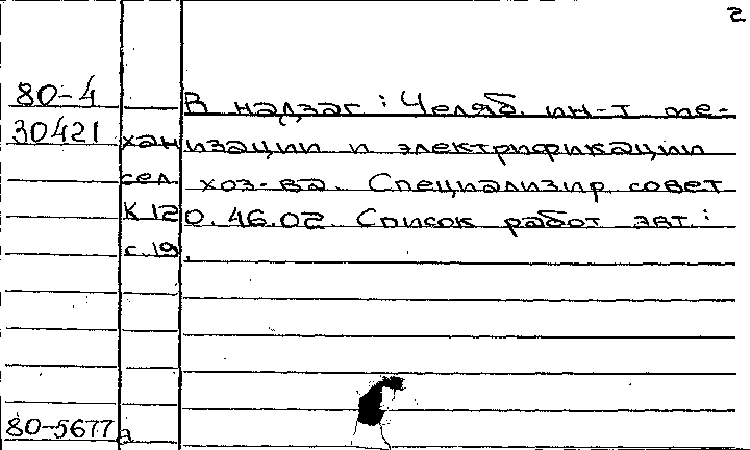 2
80-4 В надзаг: Челяб. ин-т ме-
30421 ханизации и электрификации
сел. хоз-ва. Специализир совет
К 120.46.02 Список работ авт.:
с.19.
80-5677а